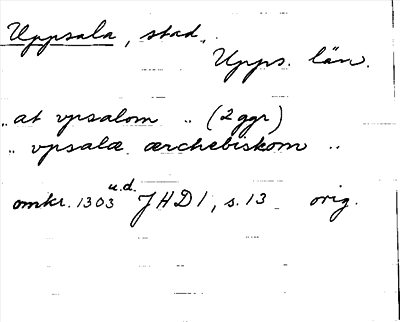 Uppsala, stad,
Upps. län.
„ at vpsalom „ (2 ggr)
„ vpsalæ ærchebiskom „
omkr. 1303 u.d. JHD 1, s. 13 orig.